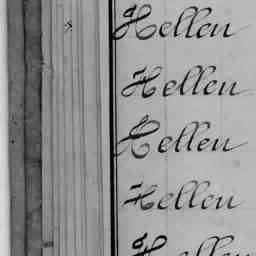 Hellen
Hellen
Hellen
Hellen
Hellen